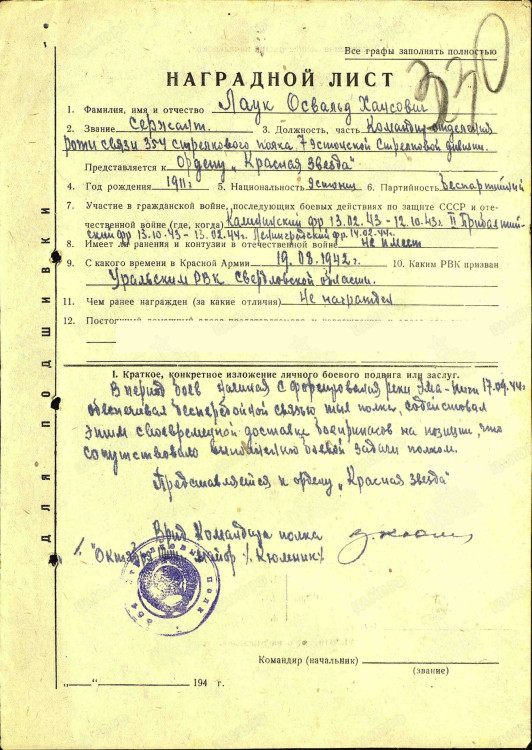 Все графы заполнять полностью
330
НАГРАДНОЙ ЛИСТ
1. Фамилия, имя и отчество Лаук Освальд Хансович
2. Звание сержант. 3. Должность, часть Командир отделения
роты связи 354 стрелкового полка, 7 Эстонской Стрелковой дивизии.
Представляется к Ордену „Красная Звезда"
4. Год рождения 1911г. 5. Национальность Эстонец 6. Партийность Беспартийный
7. Участие в гражданской войне, последующих боевых действиях по защите СССР и оте-
чественной войне (где, когда) Калининский фр 13.02.43 - 12.10.43г. II Прибалтий-
ский фр 13.10.43 - 13.02.44г. Ленинградский фр. 14.02.44г.
8. Имеет ли ранения и контузии в отечественной войне Не имеет
9. С какого времени в Красной Армии 19.08.1942г. 10. Каким РВК призван
Уральским РВК Свердловской области.
11. Чем ранее награжден (за какие отличия) Не награжден
12.
I. Краткое, конкретное изложение личного боевого подвига или заслуг.
В период боев начиная с форсирования реки Эма-Йыги 17.09.44г
обеспечивал бесперебойной связью тыл полка, содействовал
этим своевременной доставке боеприпасов на позиции, что
сопутствовало выполнению боевой задачи полком.
Представляется к ордену „Красная звезда"
Врид Командира полка
"Октября майор /Кюленик/
полк
Командир (начальник)
(звание)
„ " 194 г.
ДЛЯ ПОДШИВКИ